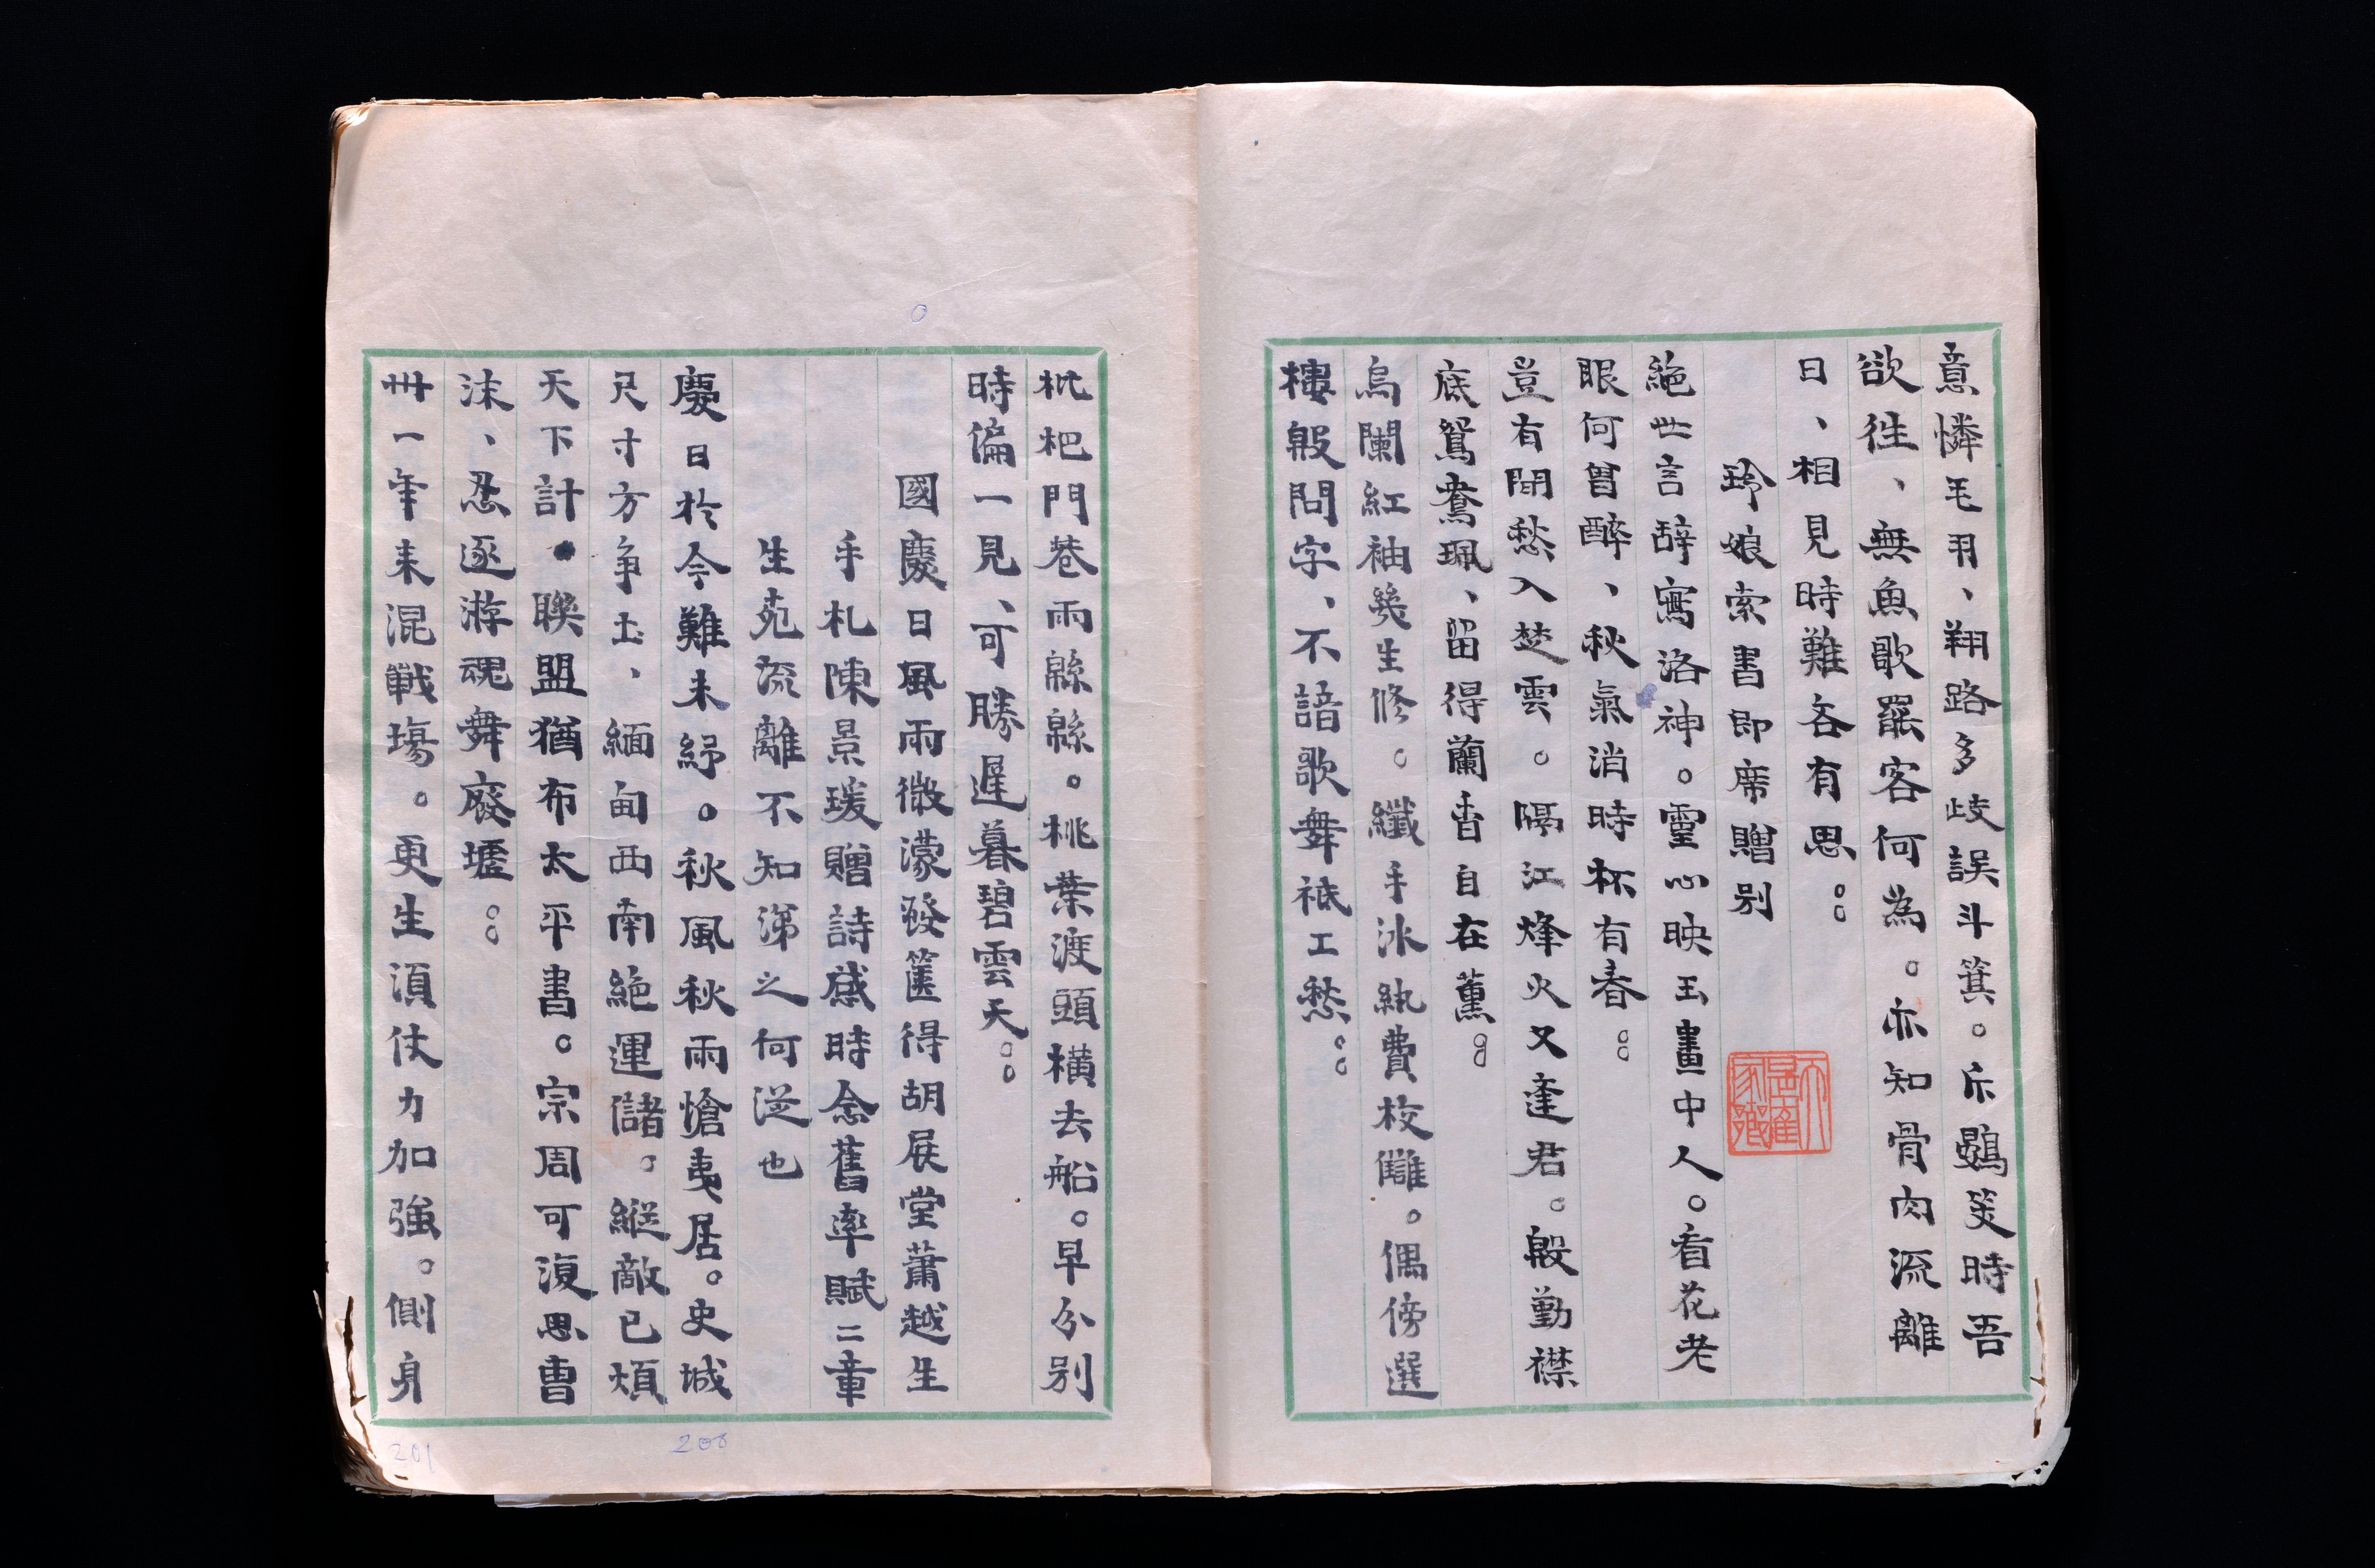 意憐毛羽、翔路多歧誤斗箕。斥鷃笑時吾
欲往、無魚歌罷客何為。亦知骨肉流離
日、相見時難各有思。。
玲娘索書即席贈別
絕世言辭寫洛神。靈心映玉畫中人。看花老
眼何曾醉、秋氣消時杯有春。。
豈有閒愁入楚雲。隔江烽火又逢君。殷勤襟
底鴛鴦珮、留得蘭香自在薰。。
烏闌紅袖幾生修。纖手冰紈費校讎。偶傍選
樓殷問字、不諳歌舞祗工愁。。
枇杷門巷雨緜緜。桃葉渡頭橫去船。早分別
時偏一見、可勝遲暮碧雲天。。
國慶日風雨微濛發篋得胡展堂蕭越生
手札陳景瑗贈詩感時念舊率賦二章
生死流離不知涕之何從也
慶日於今難未紓。秋風秋雨愴夷居。史城
尺寸方爭土、緬甸西南絕運儲。縱敵已煩
天下計。聯盟猶布太平書。宗周可復思曹
沫、忍逐游魂舞廢墟。。
卅一年來混戰場。更生須仗力加強。側身
200
201